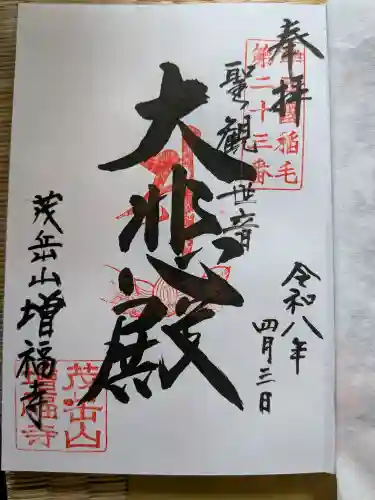 奉拝
聖観世音
大悲殿
茂岳山増福寺
令和八年
四月三日
第二十三番
稲毛
茂岳山
増福寺